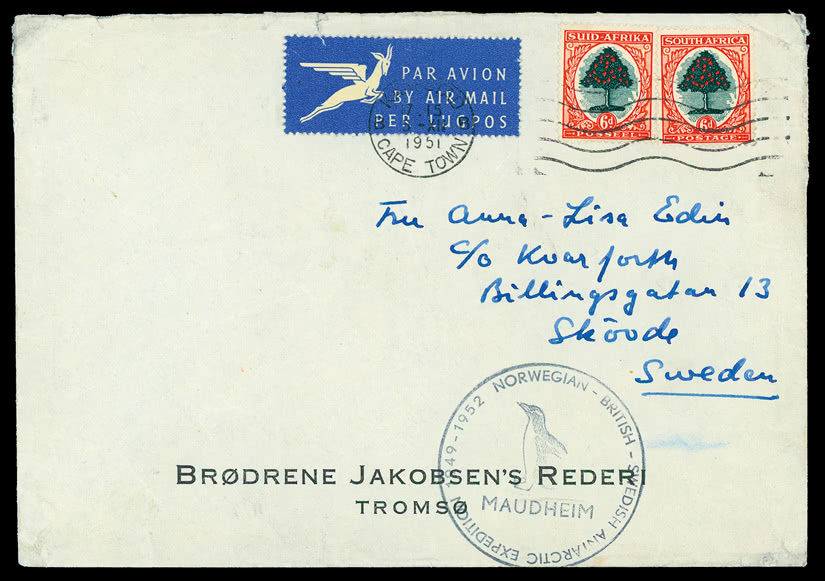 PAR AVION
BY AIR MAIL
PER LUGPOS
SUID-AFRIKA
6d
POSSEËL
SOUTH AFRICA
6d
POSTAGE
1951
CAPE TOWN
Fru Anna-Lisa Edin
c/o Kvarforth
Billingsgatan 13
Skövde
Sweden
BRØDRENE JAKOBSEN'S REDERI
TROMSØ
NORWEGIAN-BRITISH-SWEDISH ANTARCTIC EXPEDITION 1949-1952
MAUDHEIM